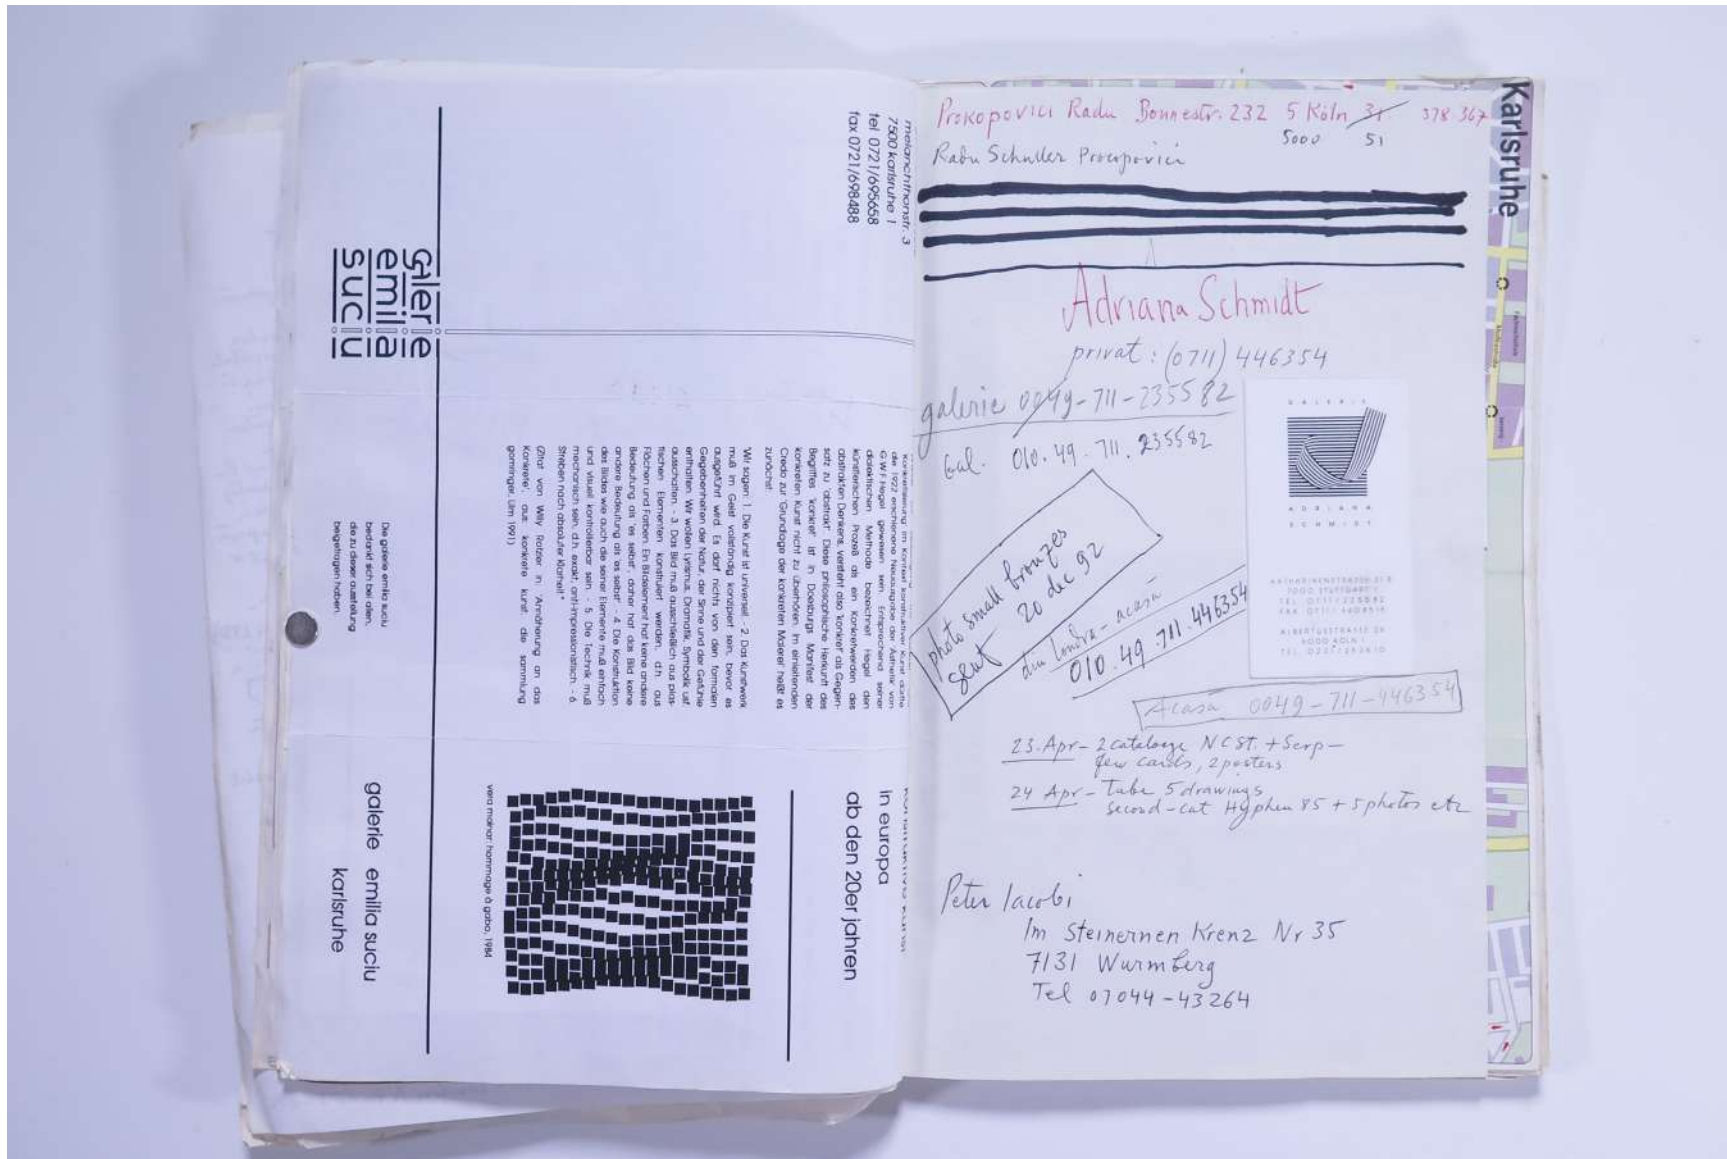 melanchthonstr. 3
7500 karlsruhe 1
tel 0721/695658
fax 0721/698488
galerie
emilia
suciu
die 1922 erschienene Neuausgabe der Ästhetik von
G W F Hegel gewesen sein. Entsprechend seiner
dialektischen Methode bezeichnet Hegel den
künstlerischen Prozeß als ein Konkretwerden des
abstrakten Denkens, versteht also 'konkret' als Gegen-
satz zu 'abstrakt'. Diese philosophische Herkunft des
Begriffes 'konkret' ist in Doesburgs Manifest der
konkreten Kunst nicht zu überhören. Im einleitenden
Credo zur 'Grundlage der konkreten Malerei' heißt es
zunächst:
'Wir sagen: 1. Die Kunst ist universell. - 2. Das Kunstwerk
muß im Geist vollständig konzipiert sein, bevor es
ausgeführt wird. Es darf nichts von den formalen
Gegebenheiten der Natur, der Sinne und der Gefühle
enthalten. Wir wollen Lyrismus, Dramatik, Symbolik usf.
ausschalten. - 3. Das Bild muß ausschließlich aus plas-
tischen Elementen konstruiert werden, d.h. aus
Flächen und Farben. Ein Bildelement hat keine andere
Bedeutung als 'es selbst', daher hat das Bild keine
andere Bedeutung als 'es selbst'. - 4. Die Konstruktion
des Bildes wie auch die seiner Elemente muß einfach
und visuell kontrollierbar sein. - 5. Die Technik muß
mechanisch sein, d.h. exakt, anti-impressionistisch. - 6.
Streben nach absoluter Klarheit."
(Zitat von Willy Rotzler in: 'Annäherung an das
Konkrete', aus: konkrete kunst, die sammlung
gomringer, Ulm 1991)
Die galerie emilia suciu
bedankt sich bei allen,
die zu dieser ausstellung
beigetragen haben.
in europa
ab den 20er jahren
vera molnar: hommage à gabo, 1984
galerie emilia suciu
karlsruhe
Prokopovici Radu Bonnestr. 232 5 Köln 31 378 367
5000 51
Radu Schuller Procopovici
Adriana Schmidt
privat: (0711) 446354
galerie 0049-711-235582
Gal. 010.49.711.235582
photo small bronzes
sent 20 dec 92
din Londra - acasa
010.49.711.446354
GALERIE
ADRIANA
SCHMIDT
7000 STUTTGART 1
5000 KÖLN 1
Acasa 0049-711-446354
23. Apr - 2 cataloage NCSt. + Serp -
few cards, 2 posters
24 Apr - tube 5 drawings
second-cat Hyphen 85 + 5 photos etc
Peter Iacobi
Im Steinernen Krenz Nr 35
7131 Wurmberg
Tel 07044-43264
Karlsruhe